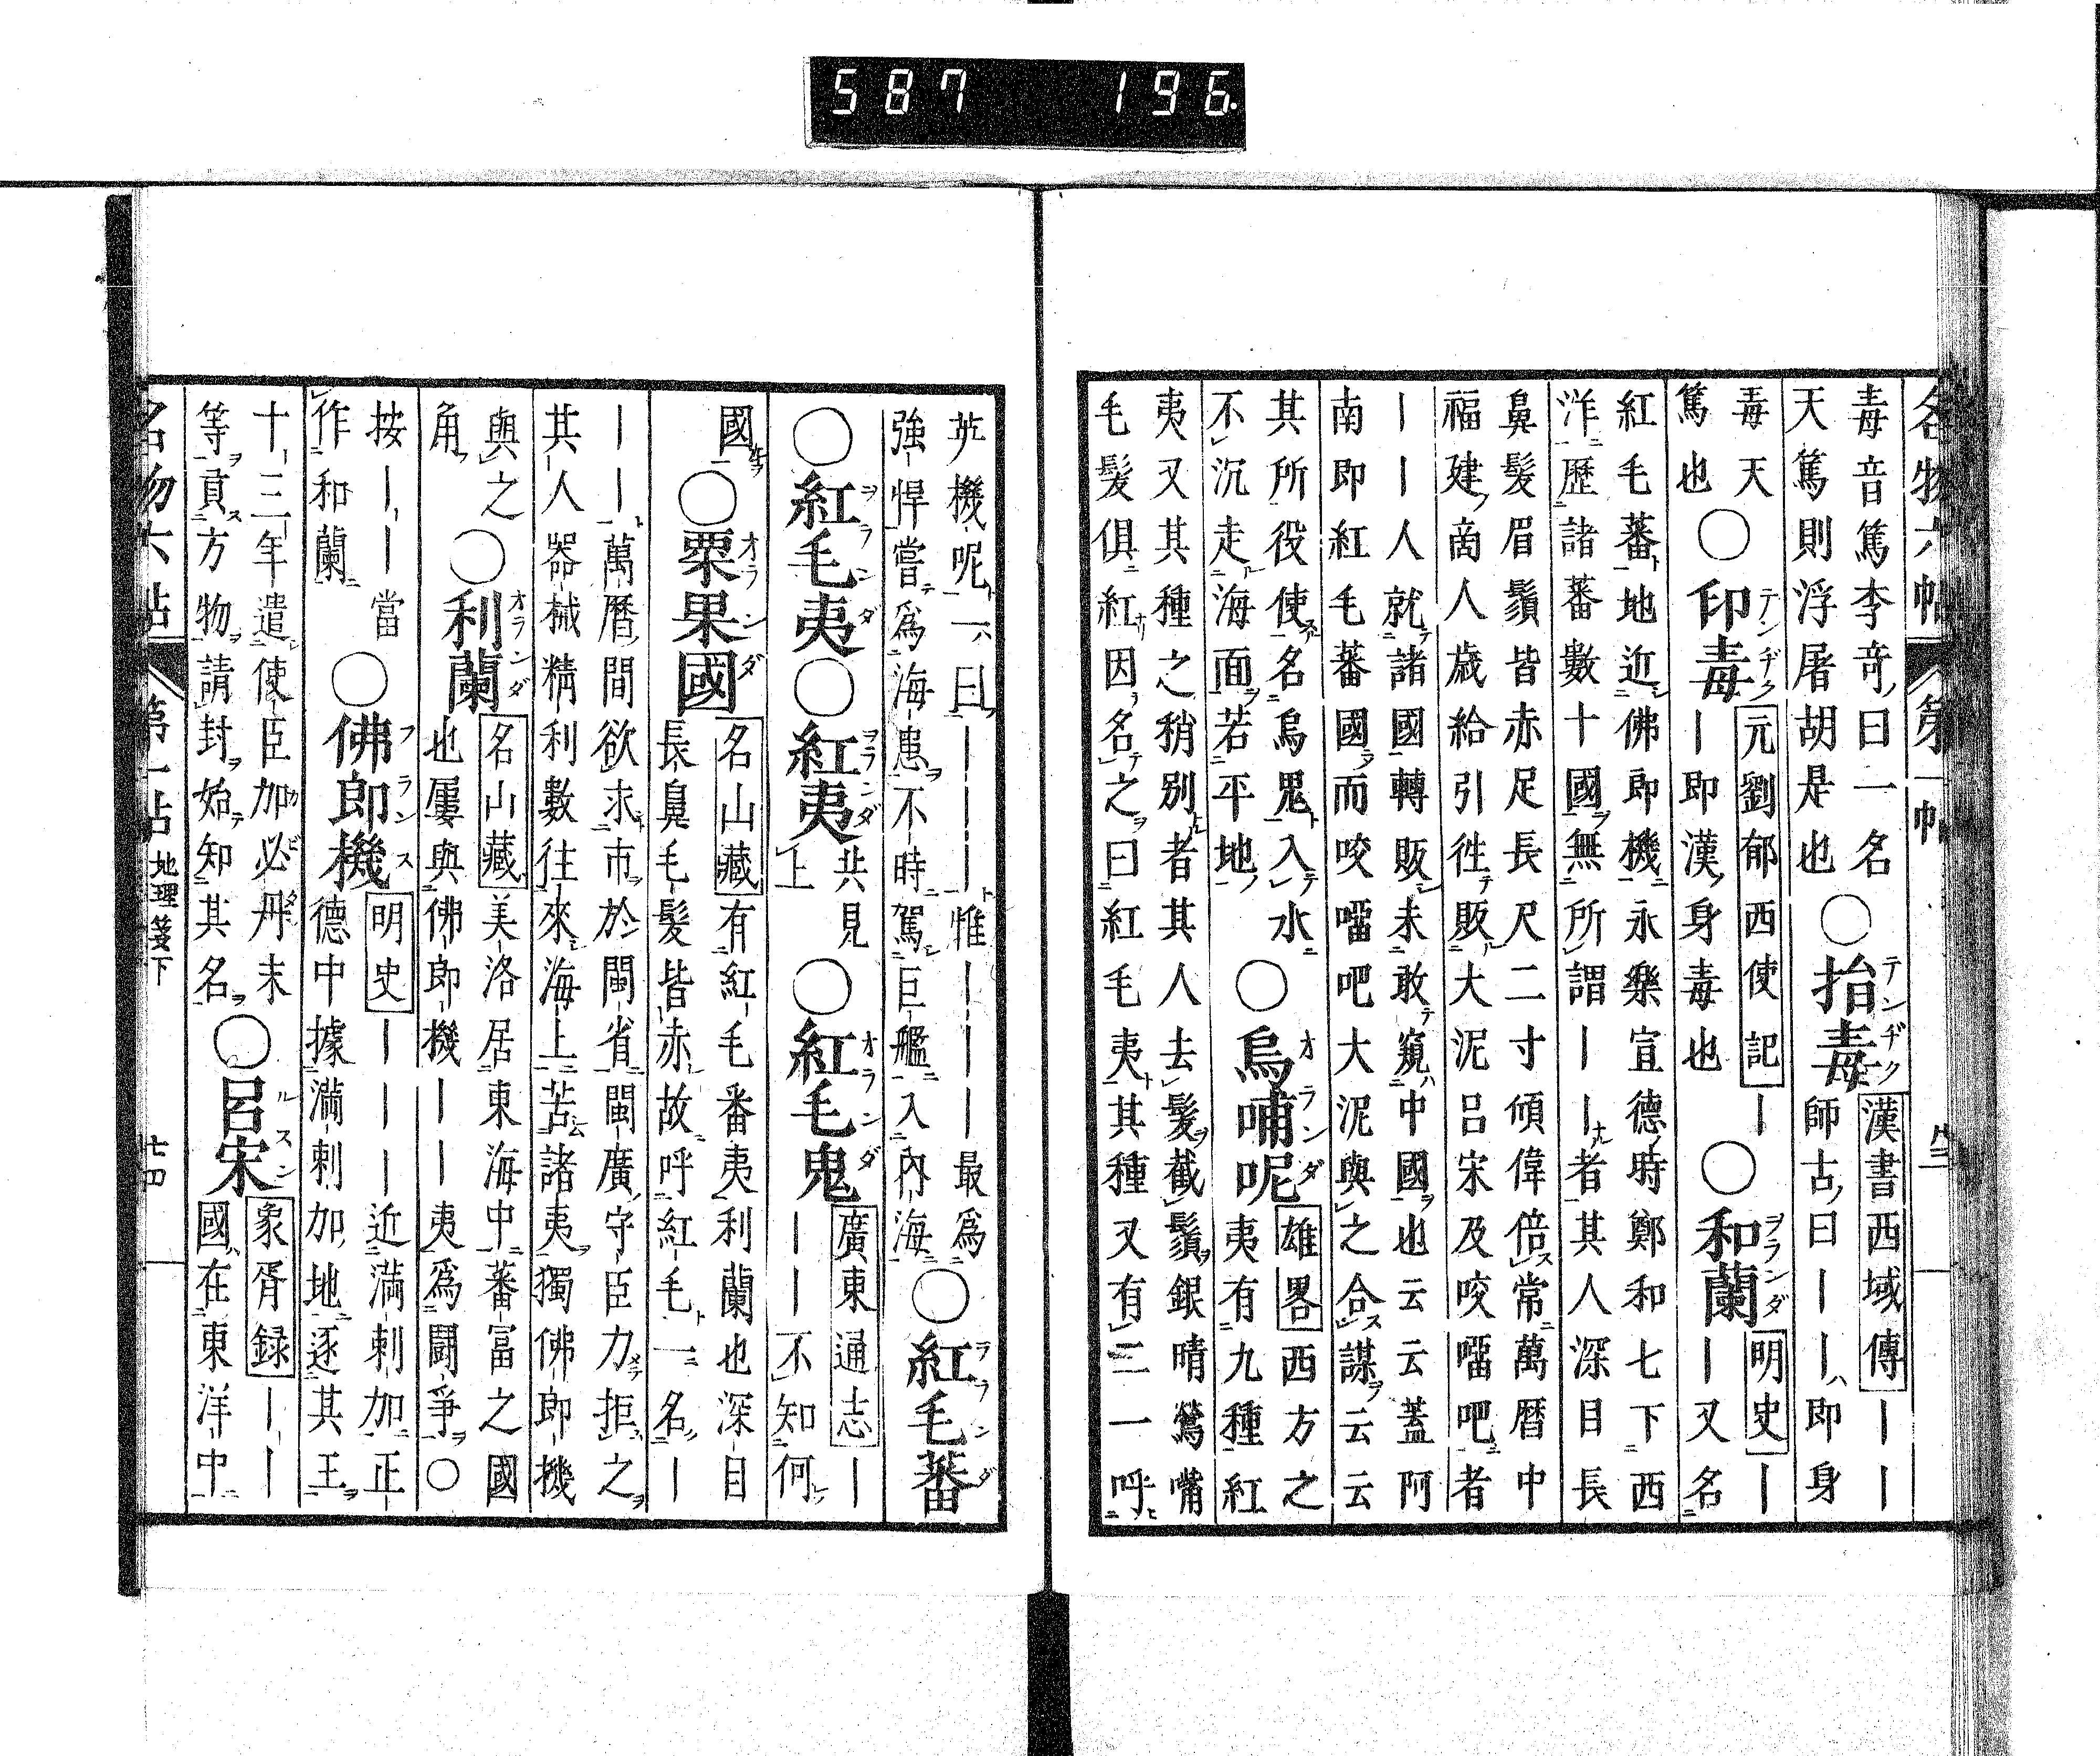 名物六帖 第一帖
毒音篤李奇曰一名
天篤則浮屠胡是也
○捐毒 テンヂク
漢書西域傳||
師古曰||即身
毒天
篤也
○印毒 テンヂク
元劉郁西使記|
|即漢身毒也
○和蘭 ヲランダ
明史|
|又名
紅毛蕃地近佛郎機永樂宣德時鄭和七下西
洋歷諸蕃數十國無所謂||者其人深目長
鼻髮眉鬚皆赤足長尺二寸傾偉倍常萬曆中
福建商人歲給引徃販大泥呂宋及咬𠺕吧者
||人就諸國轉販未敢窺中國也云云蓋阿
南即紅毛蕃國而咬𠺕吧大泥與之合謀云云
其所役使名烏鬼入水
不沉走海面若平地
○烏哺呢 オランダ
雄畧西方之
夷有九種紅
夷又其種之稍別者其人去髮截鬚銀睛鶯嘴
毛髮俱紅因名之曰紅毛夷其種又有二一呼
英機呢一曰||||惟||||最爲
強悍嘗爲海患不時駕巨艦入内海
○紅毛蕃 ヲランダ
○紅毛夷 ヲランダ
○紅夷 ヲランダ
共見
上
○紅毛鬼 オランダ
廣東通志|
||不知何
國
○粟果國 オランダ
名山藏有紅毛番夷利蘭也深目
長鼻毛髮皆赤故呼紅毛一名|
||萬曆間欲求市於閩省閩廣守臣力拒之
其人器械精利數往來海上苦諸夷獨佛郎機
與之
角
○利蘭 オランダ
名山藏美洛居東海中蕃富之國
也屢與佛郎機||夷爲鬭爭○
按||當
作和蘭
○佛郎機 フランス
明史|||近滿剌加正
德中據滿剌加地逐其王
十三年遣使臣加必丹末
等貢方物請封始知其名
○呂宋 ルスン
象胥録||
國在東洋中
名物六帖 第一帖 地理箋下 七四
587 196.